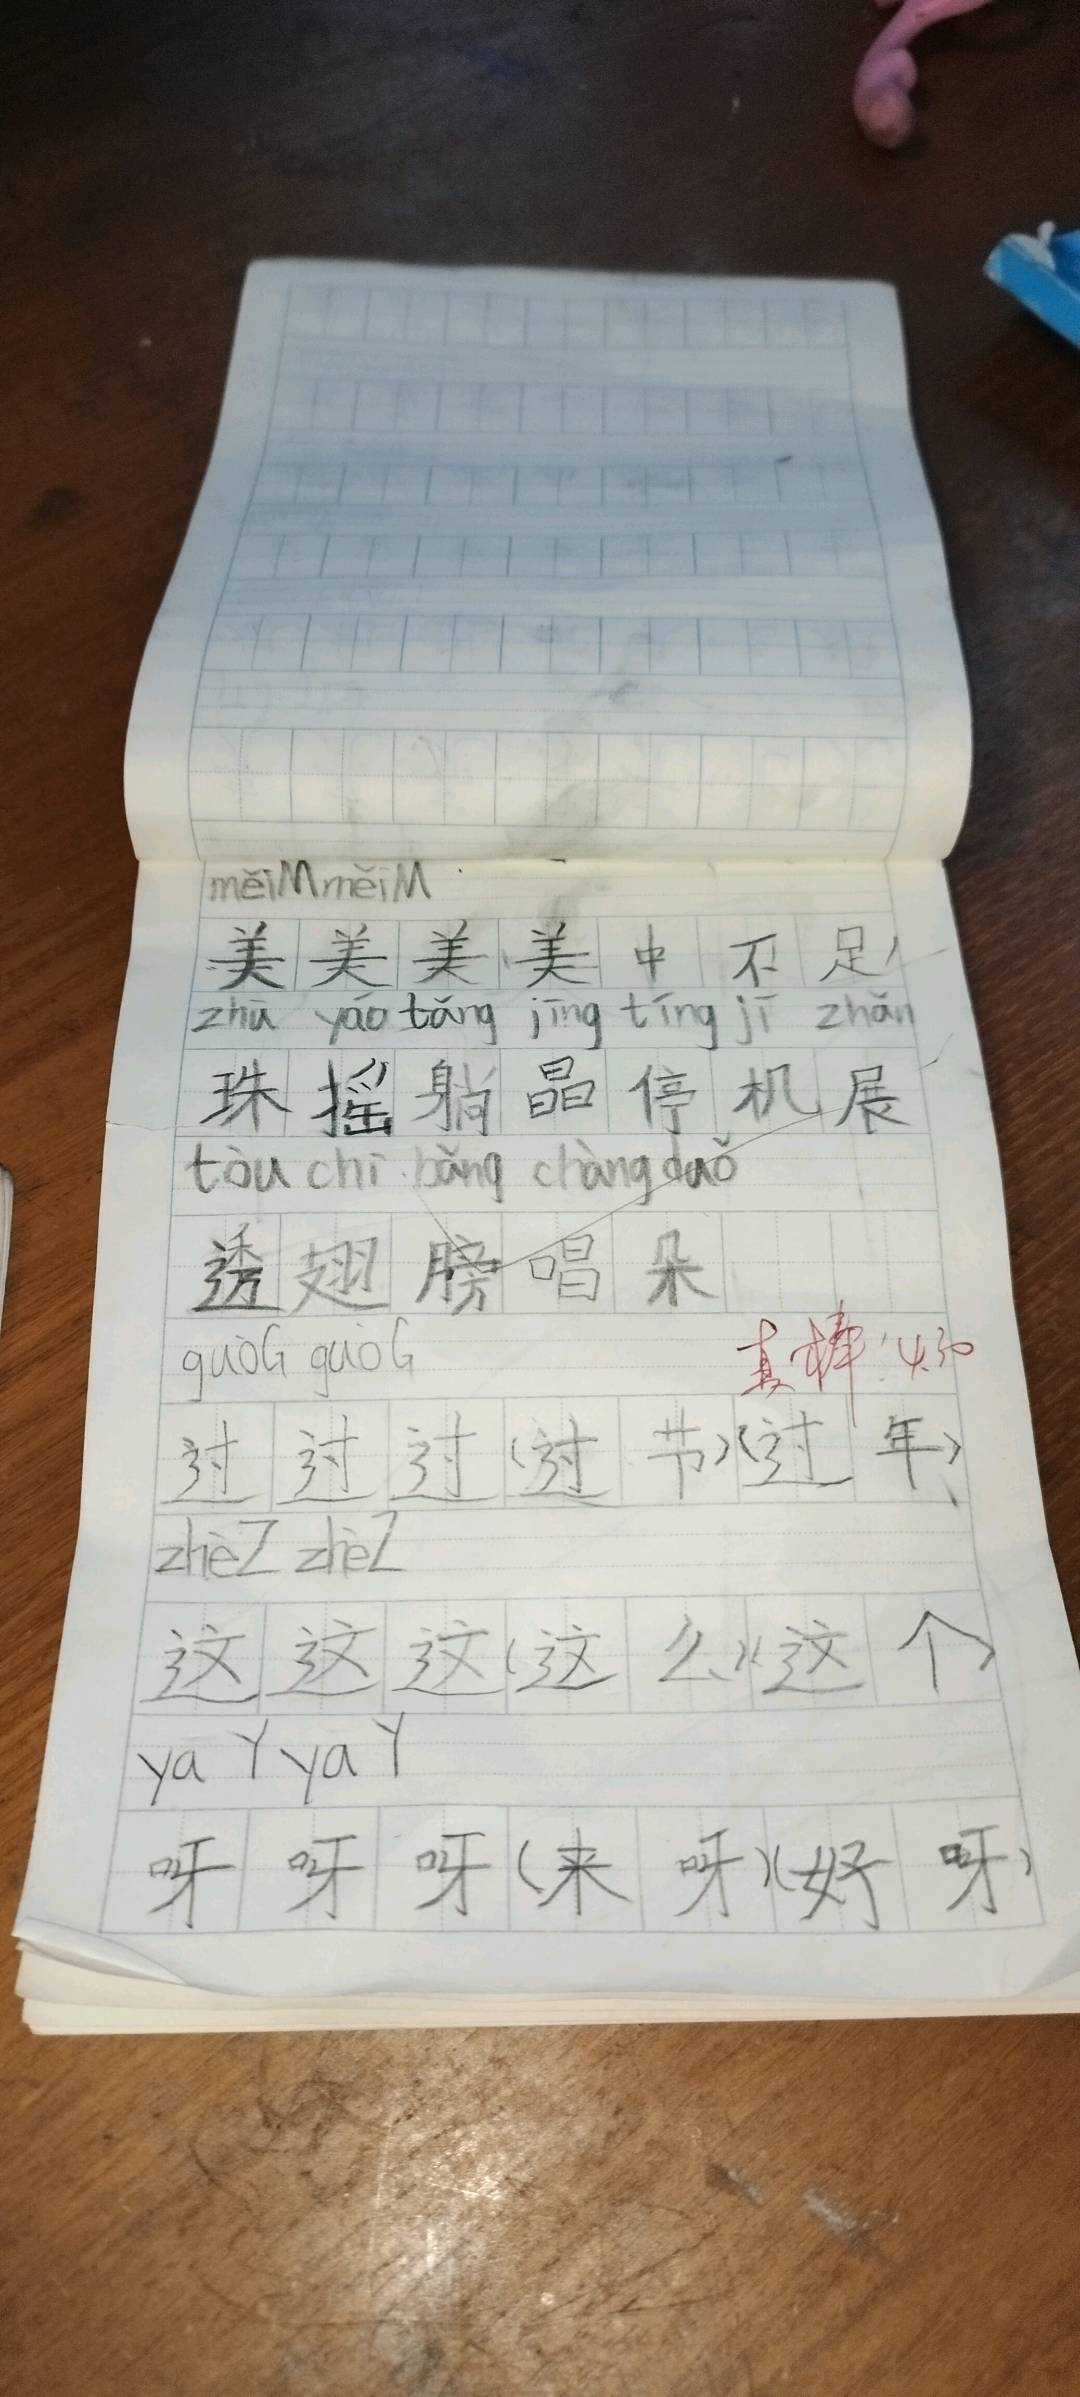 měiMměiM
美美美美中不足
zhū yáo tǎng jīng tíng jī zhǎn
珠摇躺晶停机展
tòu chì bǎng chàng duǒ
透翅膀唱朵
guòG guòG
真棒!4.30
过过过(过节)(过年)
zhèZ zhèZ
这这这(这么)(这个)
ya Y ya Y
呀呀呀(来呀)(好呀)